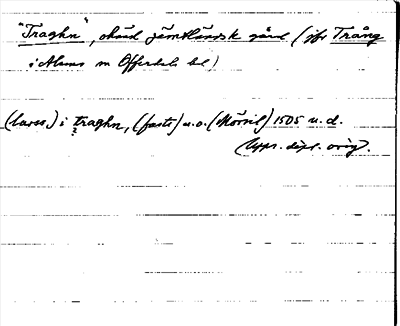 "Traghn", okänd jämtländsk gård (jfr Trång
i Alsens m Offerdals bl)
(lars) i traghn, (faste) u.a. (Mörsil) 1505 u.d.
Upps. dipl. orig.